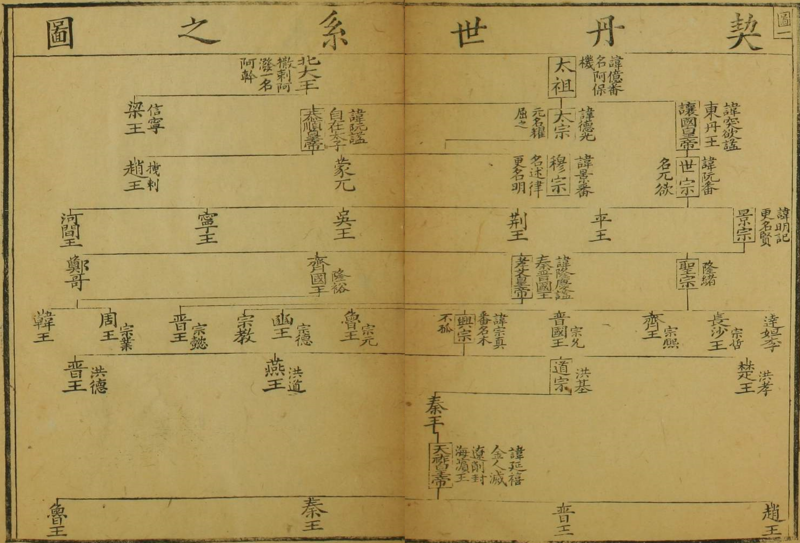 契丹世系之圖
圖一
太祖
諱億番
名阿保
機
北大王
撒剌阿
潑一名
阿幹
諱突欲謚
東丹王
讓國皇帝
諱德光
太宗
元名耀
屈之
諱阮謚
自在太子
恭順皇帝
信寧
梁王
諱阮番
世宗
名兀欲
諱景番
穆宗
名述律
更名明
蒙兀
撒剌
趙王
諱明記
更名賢
景宗
平王
荆王
吳王
寧王
河間王
隆緒
聖宗
諱隆慶謚
秦晉國王
孝文皇帝
隆裕
齊國王
鄭哥
達妲李
長沙王
宗熙
齊王
宗允
晋國王
諱宗真
番名木
不孤
興宗
宗元
魯王
宗德
幽王
宗教
宗懿
晋王
宗業
周王
韓王
洪孝
楚王
洪基
道宗
洪道
燕王
洪德
晋王
秦王
諱延禧
金人滅
遼削封
海濵王
天祚皇帝
趙王
晋王
秦王
魯王